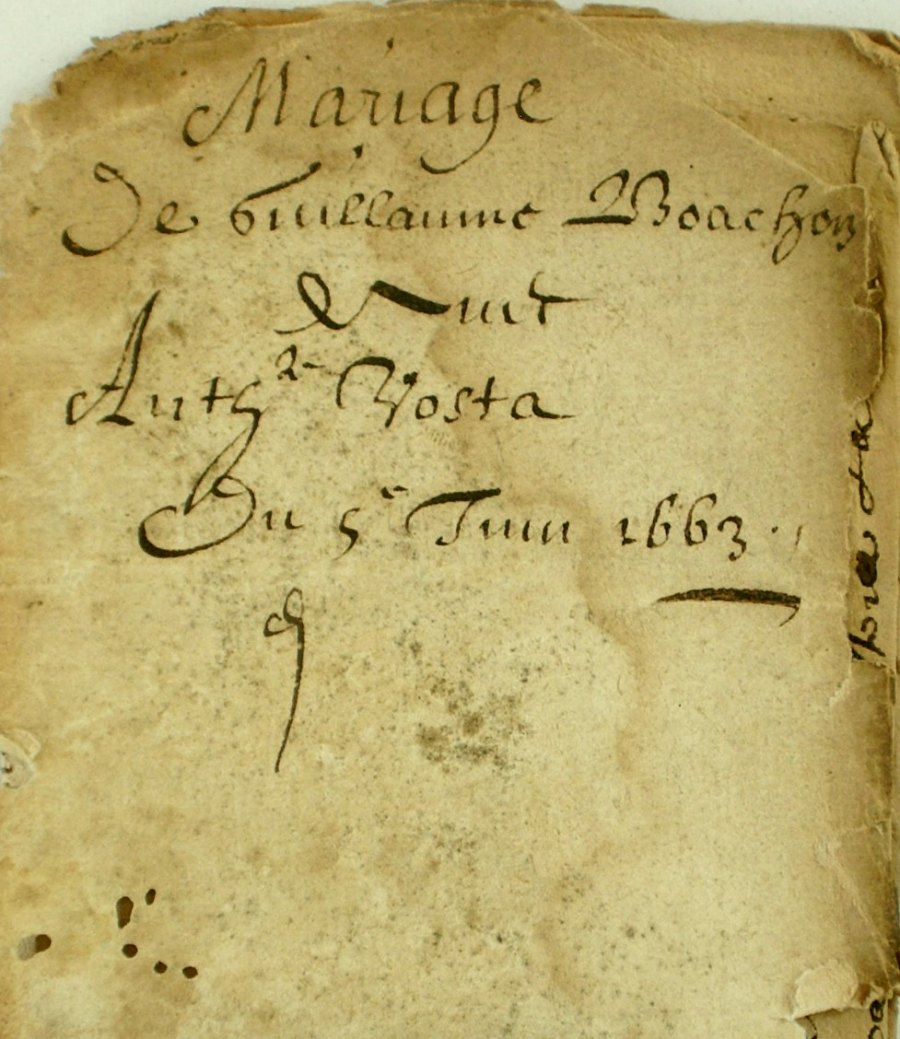 Mariage
De Guillaume Boachon
&
Anth.e Vosta
Du 5e Juin 1663